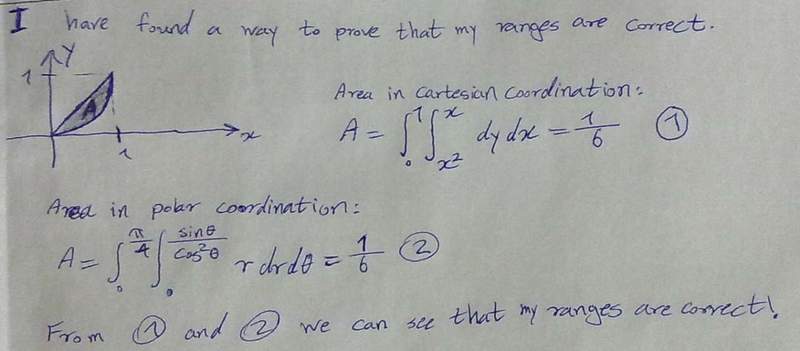 I have found a way to prove that my ranges are correct.
Y
1
A
x
1
Area in cartesian coordination:
A = ∫₀¹ ∫_{x²}^{x} dy dx = 1/6 ①
Area in polar coordination:
A = ∫₀^{π/4} ∫₀^{sinθ/cos²θ} r dr dθ = 1/6 ②
From ① and ② we can see that my ranges are correct!